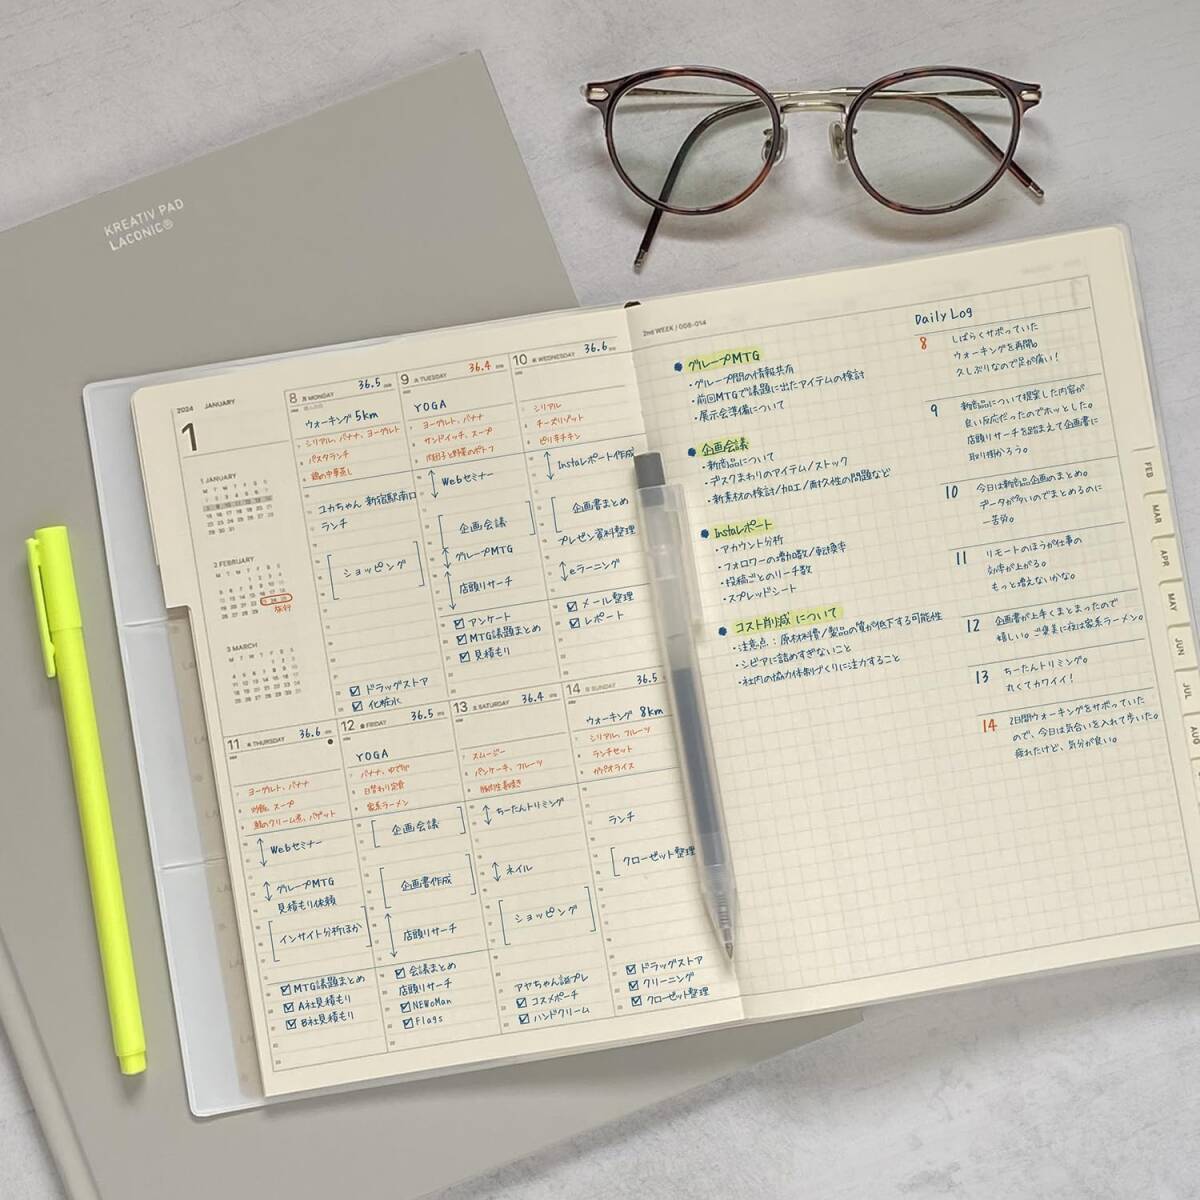 KREATIV PAD
LACONIC®
2024 JANUARY
1
1 JANUARY
2 FEBRUARY
旅行
3 MARCH
8 月 MONDAY
36.5
ウォーキング 5km
シリアル、バナナ、ヨーグルト
パスタランチ
鶏の中華蒸し
ユカちゃん 新宿駅南口
ランチ
ショッピング
ドラッグストア
化粧水
9 火 TUESDAY
36.4
YOGA
ヨーグルト、バナナ
サンドイッチ、スープ
肉団子と野菜のポトフ
Webセミナー
企画会議
グループMTG
店頭リサーチ
アンケート
MTG議題まとめ
見積もり
10 水 WEDNESDAY
36.6
シリアル
チーズリゾット
ピリ辛チキン
Instaレポート作成
企画書まとめ
プレゼン資料整理
eラーニング
メール整理
レポート
11 木 THURSDAY
36.6
ヨーグルト、バナナ
炒飯、スープ
鮭のクリーム煮、バゲット
Webセミナー
グループMTG
見積もり依頼
インサイト分析ほか
MTG議題まとめ
A社見積もり
B社見積もり
12 金 FRIDAY
36.5
YOGA
バナナ、ゆで卵
日替わり定食
家系ラーメン
企画会議
企画書作成
店頭リサーチ
会議まとめ
店頭リサーチ
NEWoMan
Flags
13 土 SATURDAY
36.4
スムージー
パンケーキ、フルーツ
豚肉生姜焼き
ちーたんトリミング
ネイル
ショッピング
アヤちゃん誕プレ
コスメポーチ
ハンドクリーム
14 日 SUNDAY
36.5
ウォーキング 8km
シリアル、フルーツ
ランチセット
ガパオライス
ランチ
クローゼット整理
ドラッグストア
クリーニング
クローゼット整理
2nd WEEK / 008-014
グループMTG
・グループ間の情報共有
・前回MTGで議題に出たアイテムの検討
・展示会準備について
企画会議
・新商品について
・デスクまわりのアイテム/ストック
・新素材の検討/加工/耐久性の問題など
Instaレポート
・アカウント分析
・フォロワーの増加数/転換率
・投稿ごとのリーチ数
・スプレッドシート
コスト削減 について
・注意点：原材料費/製品の質が低下する可能性
・シビアに詰めすぎないこと
・社内の協力体制づくりに注力すること
Daily Log
8 しばらくサボっていた
ウォーキングを再開。
久しぶりなので足が痛い！
9 新商品について提案した内容が
良い反応だったのでホッとした。
店頭リサーチを踏まえて企画書に
取り掛かろう。
10 今日は新商品企画のまとめ。
データが多いのでまとめるのに
一苦労。
11 リモートのほうが仕事の
効率が上がる。
もっと増えないかな。
12 企画書が上手くまとまったので
嬉しい。ご褒美に夜は家系ラーメン。
13 ちーたんトリミング。
丸くてカワイイ！
14 2日間ウォーキングをサボっていた
ので、今日は気合いを入れて歩いた。
疲れたけど、気分が良い。
FEB
MAR
APR
MAY
JUN
JUL
AUG